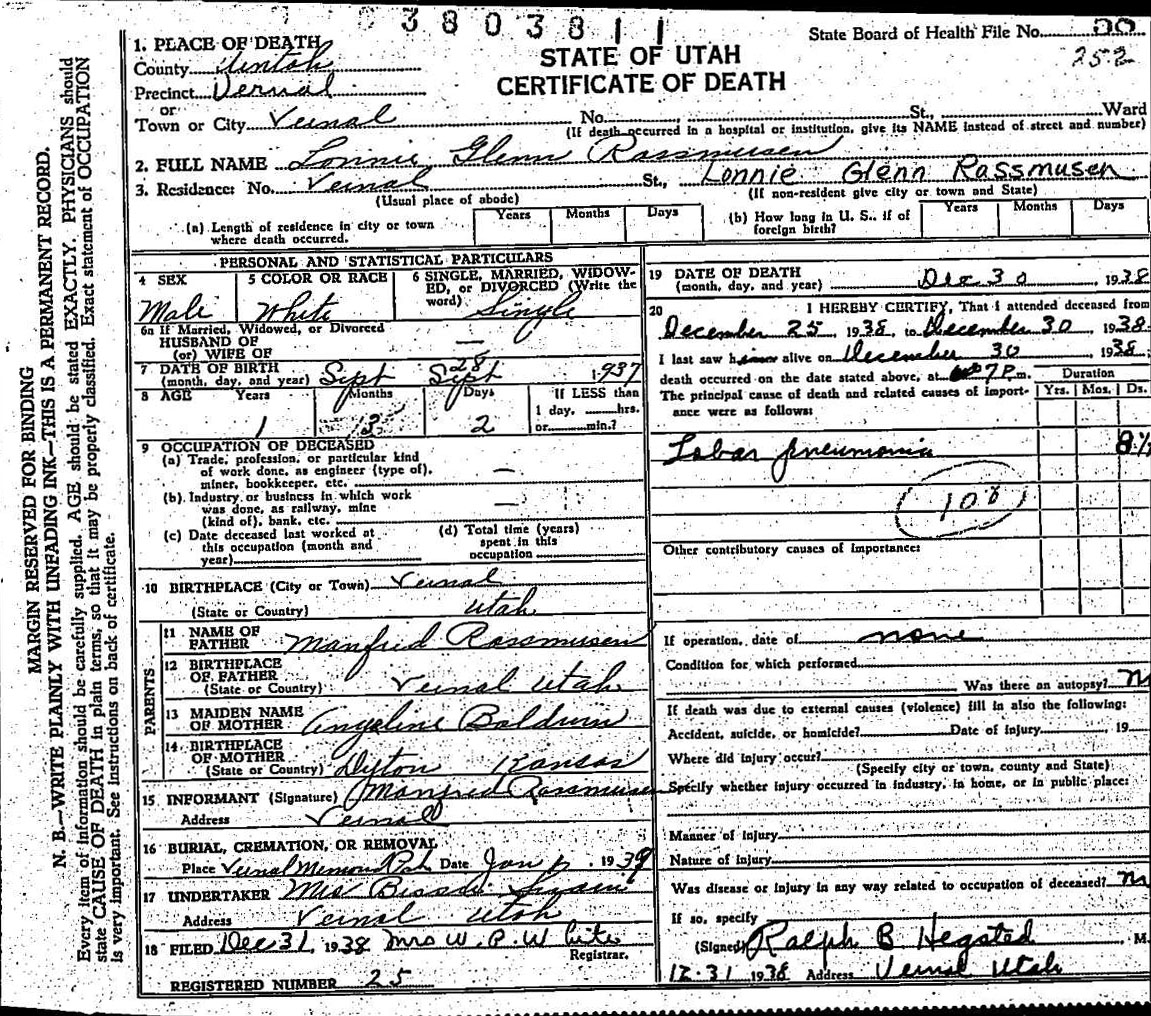 3803811
State Board of Health File No.
252
STATE OF UTAH
CERTIFICATE OF DEATH
1. PLACE OF DEATH
County Uintah
Precinct Vernal
or
Town or City Vernal No. St., Ward
(If death occurred in a hospital or institution, give its NAME instead of street and number)
2. FULL NAME Lonnie Glenn Rassmusen
3. Residence: No. Vernal St., Lonnie Glenn Rassmusen
(Usual place of abode) (If non-resident give city or town and State)
(a) Length of residence in city or town where death occurred. Years Months Days (b) How long in U. S., if of foreign birth? Years Months Days
PERSONAL AND STATISTICAL PARTICULARS
4 SEX 5 COLOR OR RACE 6 SINGLE, MARRIED, WIDOW-
ED, or DIVORCED (Write the
word)
Male White Single
6a If Married, Widowed, or Divorced
HUSBAND OF
(or) WIFE OF —
7 DATE OF BIRTH
(month, day, and year) Sept Sept 28 1937
8 AGE Years Months Days If LESS than
1 day, hrs.
or min.?
1 3 2
9 OCCUPATION OF DECEASED
(a) Trade, profession, or particular kind
of work done, as engineer (type of),
miner, bookkeeper, etc. —
(b) Industry or business in which work
was done, as railway, mine
(kind of), bank, etc. —
(c) Date deceased last worked at
this occupation (month and
year)
(d) Total time (years)
spent in this
occupation
10 BIRTHPLACE (City or Town) Vernal
(State or Country) Utah
PARENTS
11 NAME OF
FATHER Manfred Rassmusen
12 BIRTHPLACE
OF FATHER
(State or Country) Vernal Utah
13 MAIDEN NAME
OF MOTHER Angeline Baldwin
14 BIRTHPLACE
OF MOTHER
(State or Country) Dyton Kansas
15 INFORMANT (Signature) Manfred Rassmusen
Address Vernal
16 BURIAL, CREMATION, OR REMOVAL
Place Vernal Memorial Pk Date Jan 1939
17 UNDERTAKER Mrs
Address Vernal Utah
18 FILED Dec 31 1938 Mrs W. P. White
Registrar.
REGISTERED NUMBER 25
19 DATE OF DEATH
(month, day, and year) Dec 30 1938
20 I HEREBY CERTIFY, That I attended deceased from
December 25 1938 to December 30 1938
I last saw h alive on December 30 1938;
death occurred on the date stated above, at 7 P m.
Duration
The principal cause of death and related causes of import-
ance were as follows: Yrs. Mos. Ds.
Lobar pneumonia 8
108
Other contributory causes of importance:
If operation, date of none
Condition for which performed
Was there an autopsy?
If death was due to external causes (violence) fill in also the following:
Accident, suicide, or homicide? Date of injury 19
Where did injury occur?
(Specify city or town, county and State)
Specify whether injury occurred in industry, in home, or in public place:
Manner of injury
Nature of injury
Was disease or injury in any way related to occupation of deceased?
If so, specify
(Signed) Ralph B Hegsted M.
12-31 1938 Address Vernal Utah
MARGIN RESERVED FOR BINDING
N. B.—WRITE PLAINLY WITH UNFADING INK—THIS IS A PERMANENT RECORD.
Every item of information should be carefully supplied. AGE should be stated EXACTLY. PHYSICIANS should
state CAUSE OF DEATH in plain terms, so that it may be properly classified. Exact statement of OCCUPATION
is very important. See instructions on back of certificate.